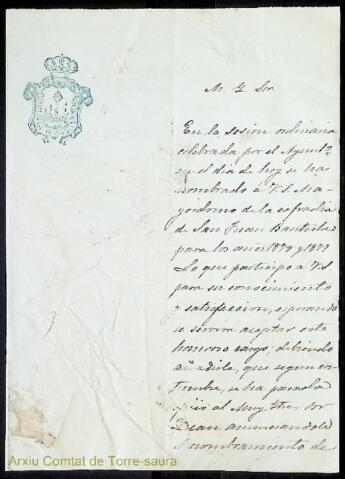 M. I. Sor.
En la sesion ordinaria
celebrada por el Ayuntº
en el dia de hoy se ha
nombrado á V.S. Ma-
yordomo de la cofradia
de San Juan Bautista
para los años 1878 y 1879
Lo que participo á V.S.
para su conocimiento
y satisfaccion, esperando
se servirá aceptar este
honroso cargo; debiendo
añadirle, que segun cos-
tumbre, se ha pasado
oficio al Muy Iltre Sor
Dean anunciandole
el nombramiento de
Arxiu Comtat de Torre-saura